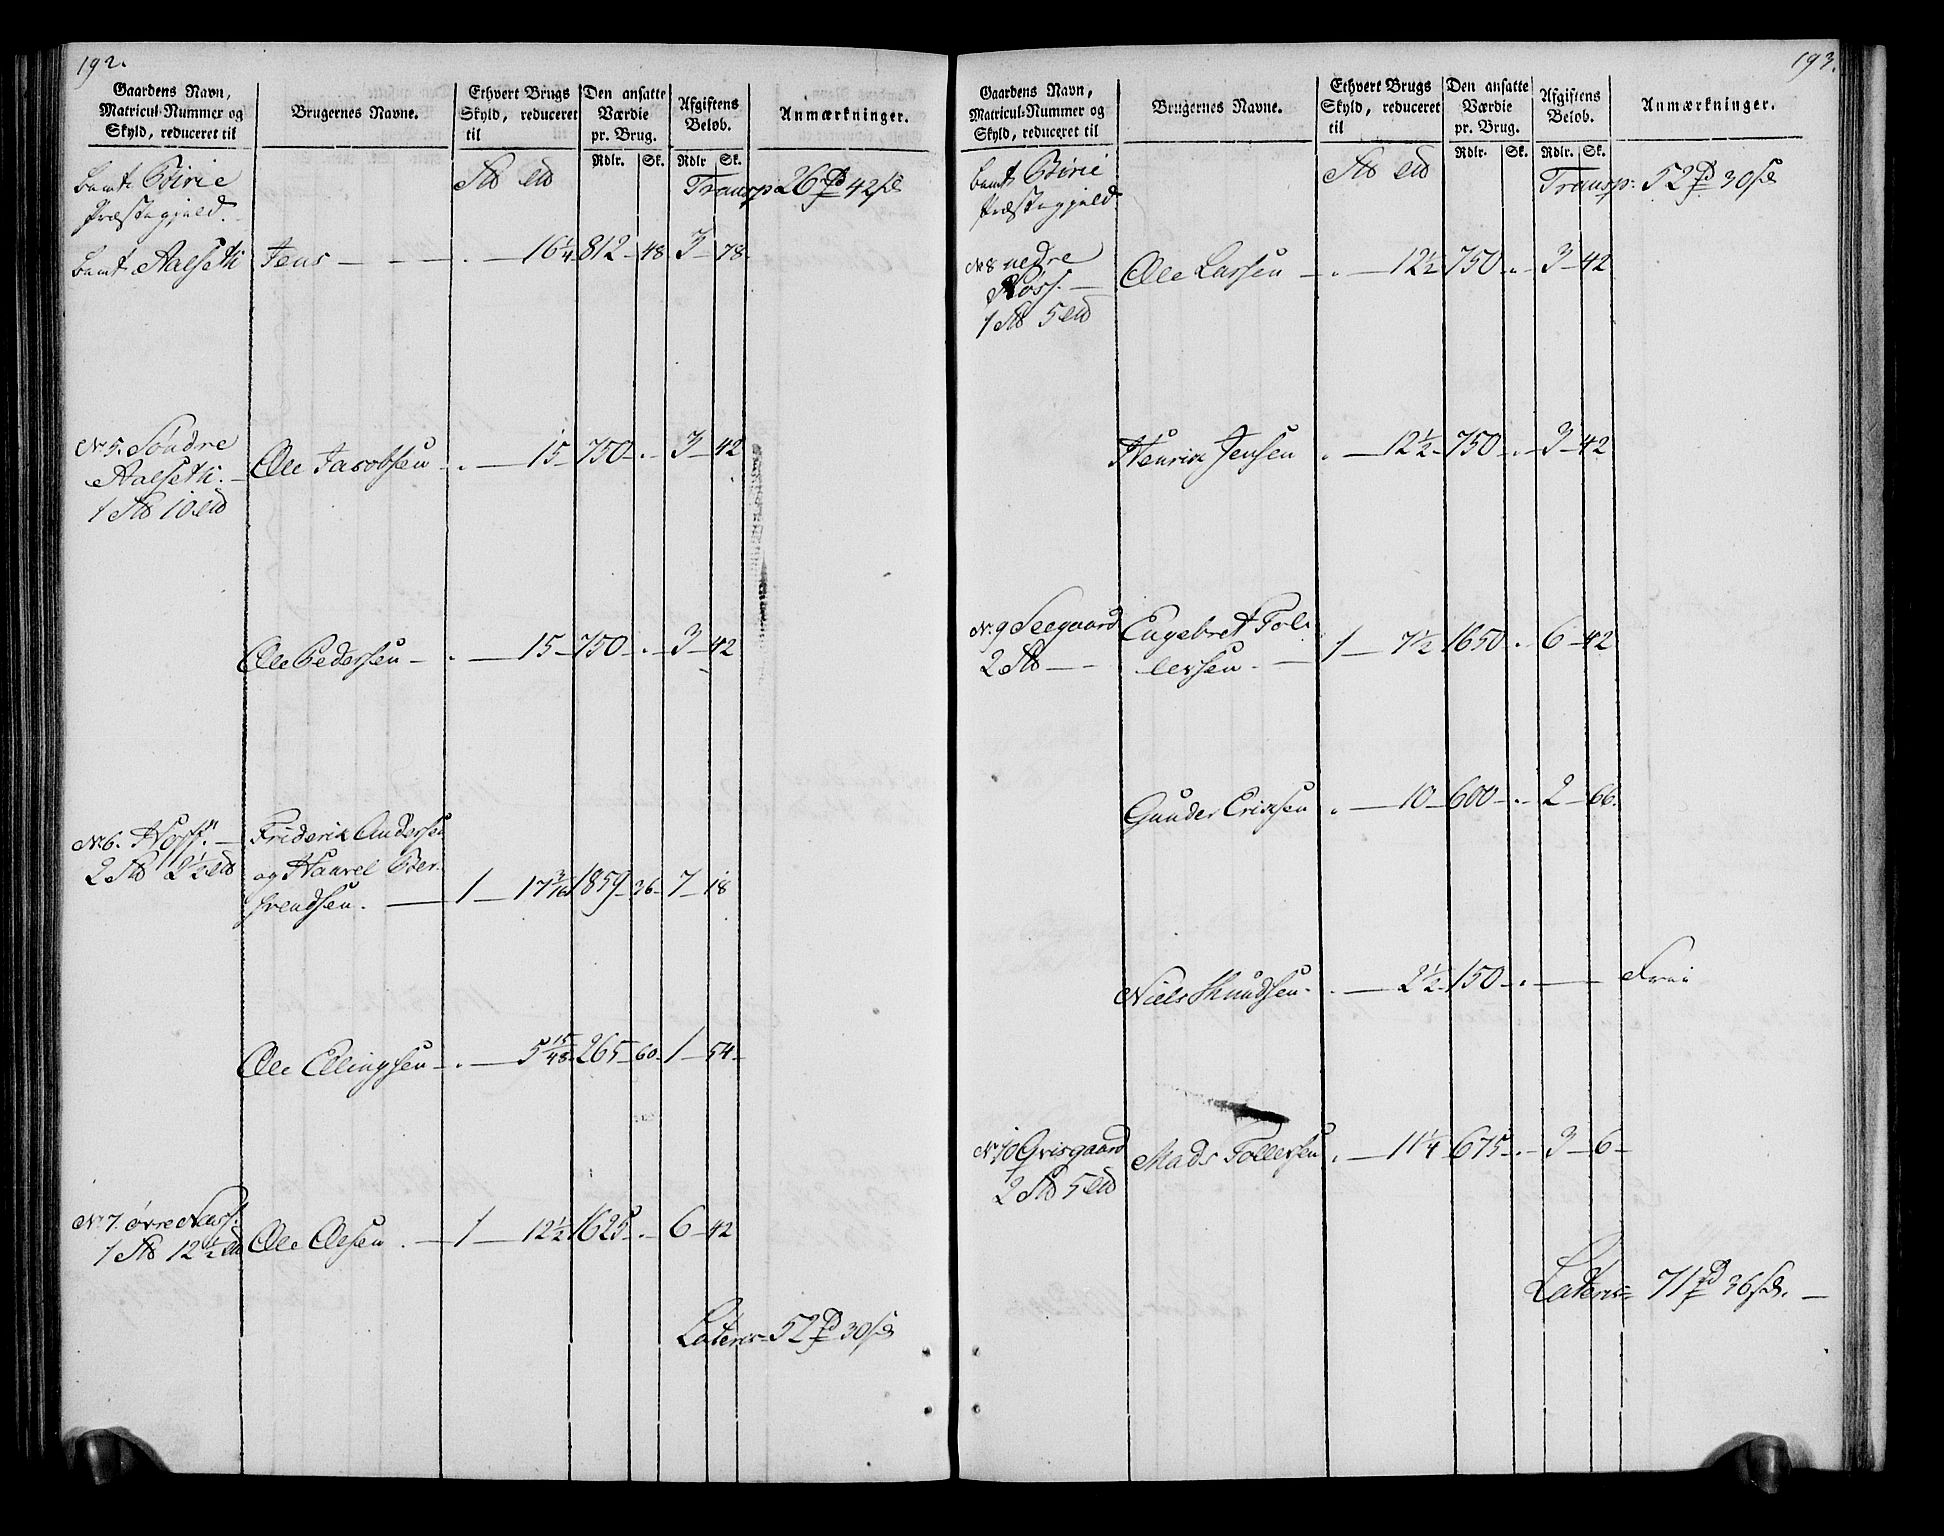 192.
Gaardens Navn,
Matricul-Nummer og
Skyld, reduceret til
Brugernes Navne.
Ethvert Brugs
Skyld, reduceret
til
Den ansatte
Værdie
pr. Brug.
Afgiftens
Beløb.
Anmærkninger.
Rdlr. Sk. Rdlr Sk.
Birie
Præstegjeld.
Transp: 26 42
Aalseth Jens 16¼ 812 48 3 78
No 5. Søndre
Aalseth.
1 10
Ole Jacobsen 15 750 3 42
Ole Pedersen 15 750 3 42
No 6. Hoff.
2 2½
Friderik Andersen
og Haavel Ber-
svendsen. 1 17 3/16 1859 36 7 18
Ole Ellingsen 5 15/48 265 60 1 54
No 7. øvre
1 12½
Ole Olsen 1 12½ 1625 6 42
Lateris 52 30
193.
Gaardens Navn,
Matricul-Nummer og
Skyld, reduceret til
Brugernes Navne.
Ethvert Brugs
Skyld, reduceret
til
Den ansatte
Værdie
pr. Brug.
Afgiftens
Beløb.
Anmærkninger.
Rdlr. Sk. Rdlr. Sk.
Birie
Præstegjeld
Transp: 52 30
No 8 nedre
1 5
Ole Larsen 12½ 750 3 42
Henrik Jensen 12½ 750 3 42
No. 9 Seegaard
2
Engebret Tol-
lersen. 1 7½ 1650 6 42
Gunder Erixsen 10 600 2 66
Niels Knudsen 2½ 150 Frie
No 10 Grisgaard
2 5
Mads Tollersen 11¼ 675 3 6
Lateris 71 36